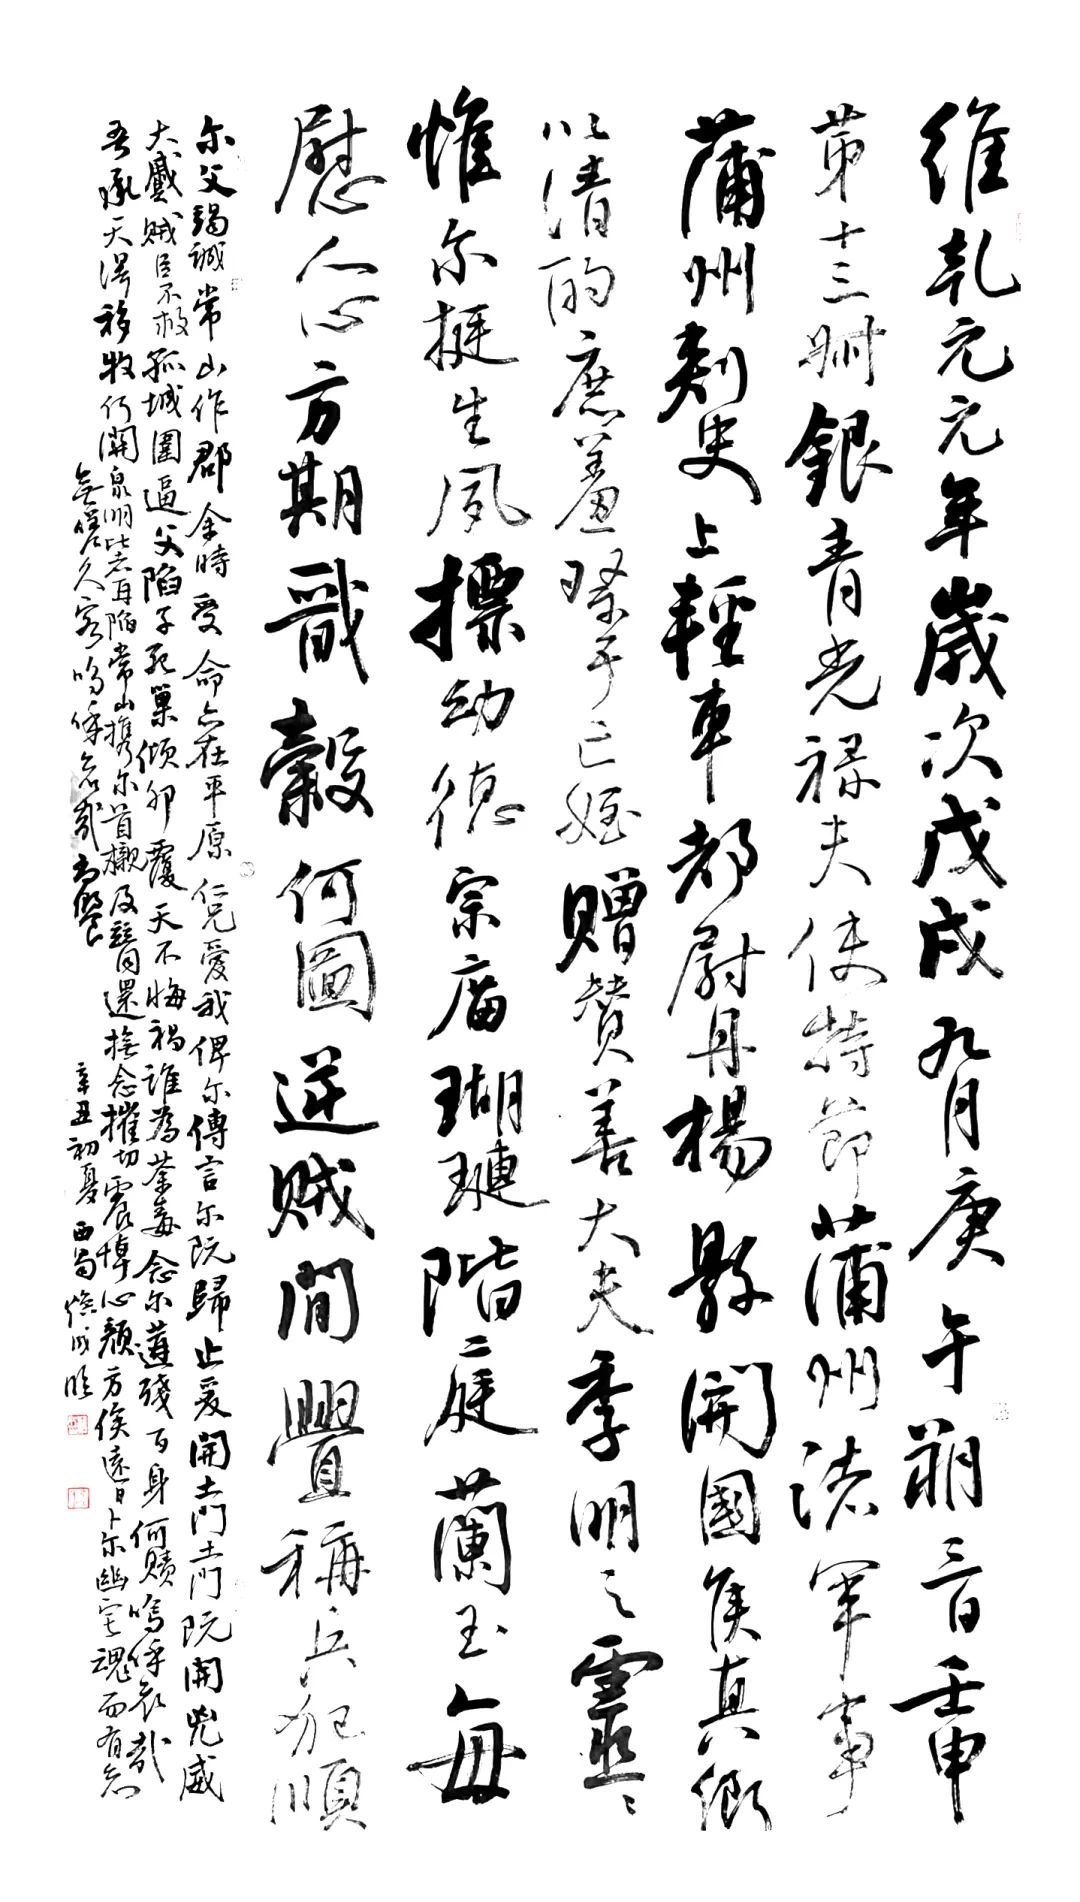 維乾元元年歲次戊戌九月庚午朔三日壬申
第十三叔銀青光禄夫使持節蒲州諸軍事
蒲州刺史上輕車都尉丹楊縣開國侯真卿
以清酌庶羞祭于亡姪贈贊善大夫季明之靈
惟尔挺生夙標幼德宗廟瑚璉階庭蘭玉每
慰人心方期戩穀何圖逆賊閒釁稱兵犯順
尔父竭誠常山作郡余時受命亦在平原仁兄愛我俾尔傳言尔既歸止爰開土門土門既開兇威
大蹙賊臣不救孤城圍逼父陷子死巢傾卵覆天不悔禍誰為荼毒念尔遘殘百身何贖嗚呼哀哉
吾承天澤移牧河關泉明比者再陷常山携尔首櫬及兹同還撫念摧切震悼心顏方俟遠日卜尔幽宅魂而有知
無嗟久客嗚呼哀哉尚饗 辛丑初夏西蜀